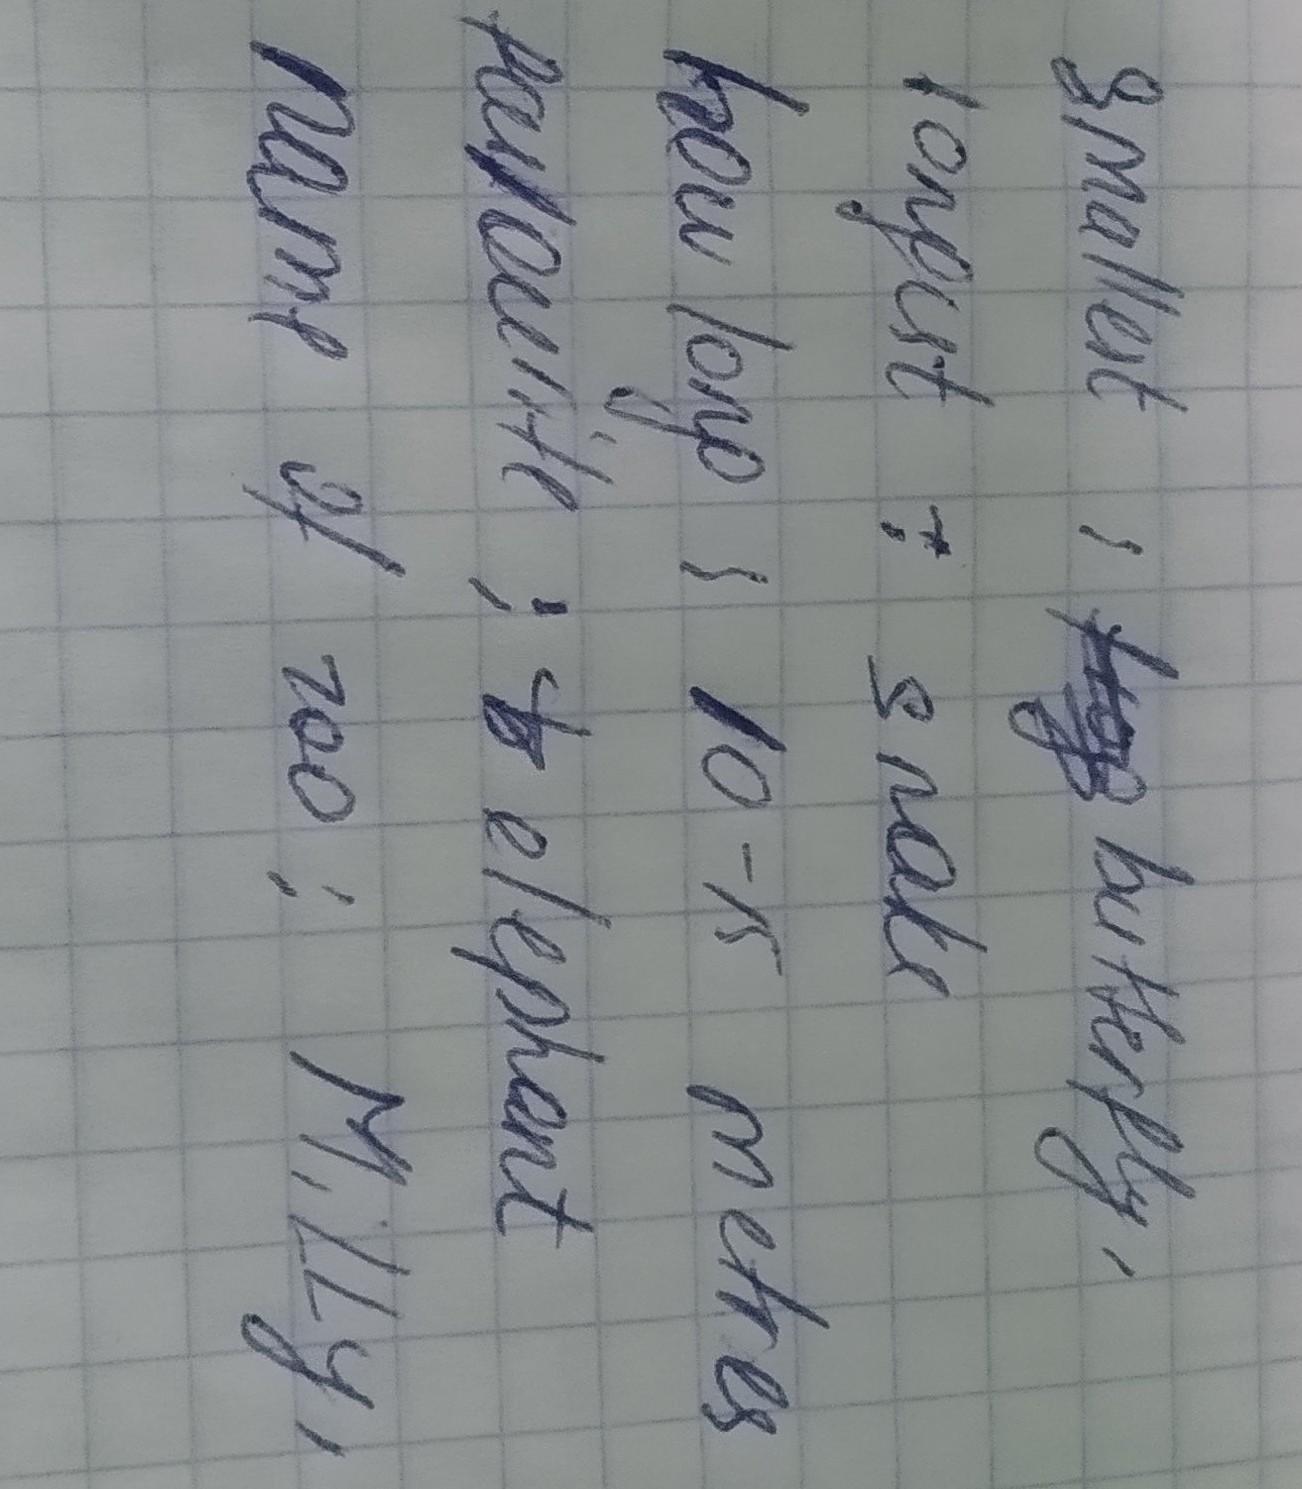 smallest : butterfly,
longest : snake
how long : 10-15 metres
favourite : elephant
name of zoo : MiLLy,